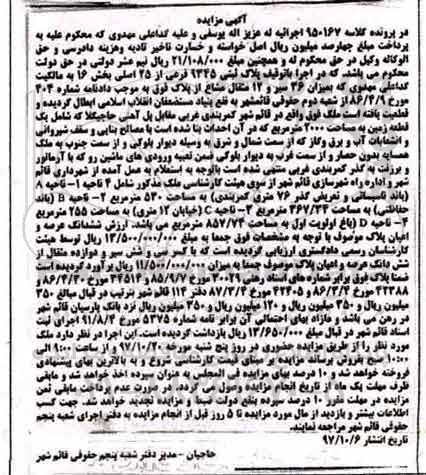 آگهی مزایده
در پرونده کلاسه ۹۵۰۱۶۷ اجرائیه له عزیز اله یوسفی و علیه کداعلی مهدوی که محکوم علیه به
پرداخت مبلغ چهارصد میلیون ریال اصل خواسته و خسارت تاخیر تادیه وهزینه دادرسی و حق
الوکاله وکیل در حق محکوم له و همچنین مبلغ ۲۱/۱۰۸/۰۰۰ ریال نیم عشر دولتی در حق دولت
محکوم می باشد. که در اجرا باتوقیف پلاک ثبتی ۹۳۴۵ فرعی از ۲۵ اصلی بخش ۱۶ به مالکیت
کداعلی مهدوی که بمیزان ۴۶ سیر و ۱۲ مثقال مشاع از پلاک فوق به موجب دادنامه شماره ۴۰۴
مورخ ۸۶/۴/۹ از شعبه دوم حقوقی قائمشهر به نفع بنیاد مستضعفان انقلاب اسلامی ابطال گردیده و
قطعیت یافته است ملک فوق واقع در قائم شهر کمربندی غربی مقابل پل آهنی حاجیکلا که شامل یک
قطعه زمین به مساحت ۲۰۰۰ مترمربع که در آن احداث بنا شده است با مصالح بنایی و سقف شیروانی
و انشعابات آب و برق وگاز که از سمت شمال و شرق به وسیله دیوار بلوکی و از سمت جنوب به ملک
همسایه بدون حصار و از سمت غرب به دیوار بلوکی ضمن تعبیه ورودی های ماشین رو که با آرماتور
و برزنت به گذر کمربندی غربی منتهی شده است باتوجه به استعلام به عمل آمده از شهرداری قائم
شهر و اداره راه شهرسازی قائم شهر از سوی هیئت کارشناسی ملک مذکور شامل ۴ ناحیه ۱- ناحیه A
(باند تاسیساتی و تعریض گذر ۷۶ متری کمربندی) به مساحت ۵۳۰ مترمربع ۲- ناحیه B (باند
حفاظتی) به مساحت ۳۶۷/۳۴ مترمربع ۳- ناحیه C (خیابان ۱۲ متری) به مساحت ۲۵۵ مترمربع
۴- ناحیه D (باغ اولویت اول به مساحت ۸۵۷/۷۴ مترمربع می باشد. ارزش ششدانگ عرصه و
اعیان پلاک موصوف با توجه به مشخصات فوق جمعا به مبلغ ۱۳/۵۰۰/۰۰۰/۰۰۰ ریال توسط هیئت
کارشناسان رسمی دادگستری ارزیابی گردیده است که با کسر سی و شش سیر و دوازده مثقال از
شش دانگ عرصه و اعیان پلاک موصوف جمعا به میزان ۱۱/۵۰۰/۰۰۰/۰۰۰ ریال برآورد گردیده است
ضمنا پلاک فوق برابر شماره های اسناد رهنی ۳۰۰۲۹ مورخ ۸۵/۹/۷ و ۳۴۵۱۴ مورخ ۸۶/۴/۳۰ و
۴۲۳۸۸ مورخ ۸۶/۳/۴ و ۴۲۴۰۵ مورخ ۸۷/۳/۴ دفتر ۱۱۴ قائم شهر بترتیب در قبال مبالغ ۳۵۰
میلیون ریال و ۳۵۰ میلیون ریال و ۱۲۰ میلیون ریال و ۳۵۰ میلیون ریال نزد بانک پارسیان قائم شهر
در رهن می باشد و مازاد بهای احتمالی آن برابر نامه شماره ۵۳۷۵ مورخ ۹۱/۸/۴ اجرای ثبت
اسناد قائم شهر در قبال مبلغ ۱۳/۶۵۰/۰۰۰ ریال بازداشت گردیده است. این اجرا در نظر دارد ملک
مورد نظر را از طریق مزایده حضوری در روز پنج شنبه مورخه ۹۷/۱۰/۲۰ و از ساعت ۹:۰۰ الی
۱۰:۰۰ صبح بفروش برساند مزایده بر مبنای قیمت کارشناسی شروع و به بالاترین بهای پیشنهادی
فروخته خواهد شد و ۱۰ درصد بهای مزایده فی المجلس به عنوان سپرده اخذ خواهد شد و مابقی
ظرف مهلت یک ماه از تاریخ انجام مزایده وصول می گردد. در صورت عدم پرداخت مابقی ثمن
مزایده در مهلت مقرر ۱۰ درصد سپرده بنفع دولت ضبط و مزایده تجدید خواهد شد. جهت کسب
اطلاعات بیشتر و بازدید از مال مورد مزایده تا ۵ روز قبل از انجام مزایده به دفتر اجرای شعبه پنجم
حقوقی قائم شهر مراجعه نمایند.
تاریخ انتشار ۹۷/۱۰/۶
حاجیان - مدیر دفتر شعبه پنجم حقوقی قائم شهر